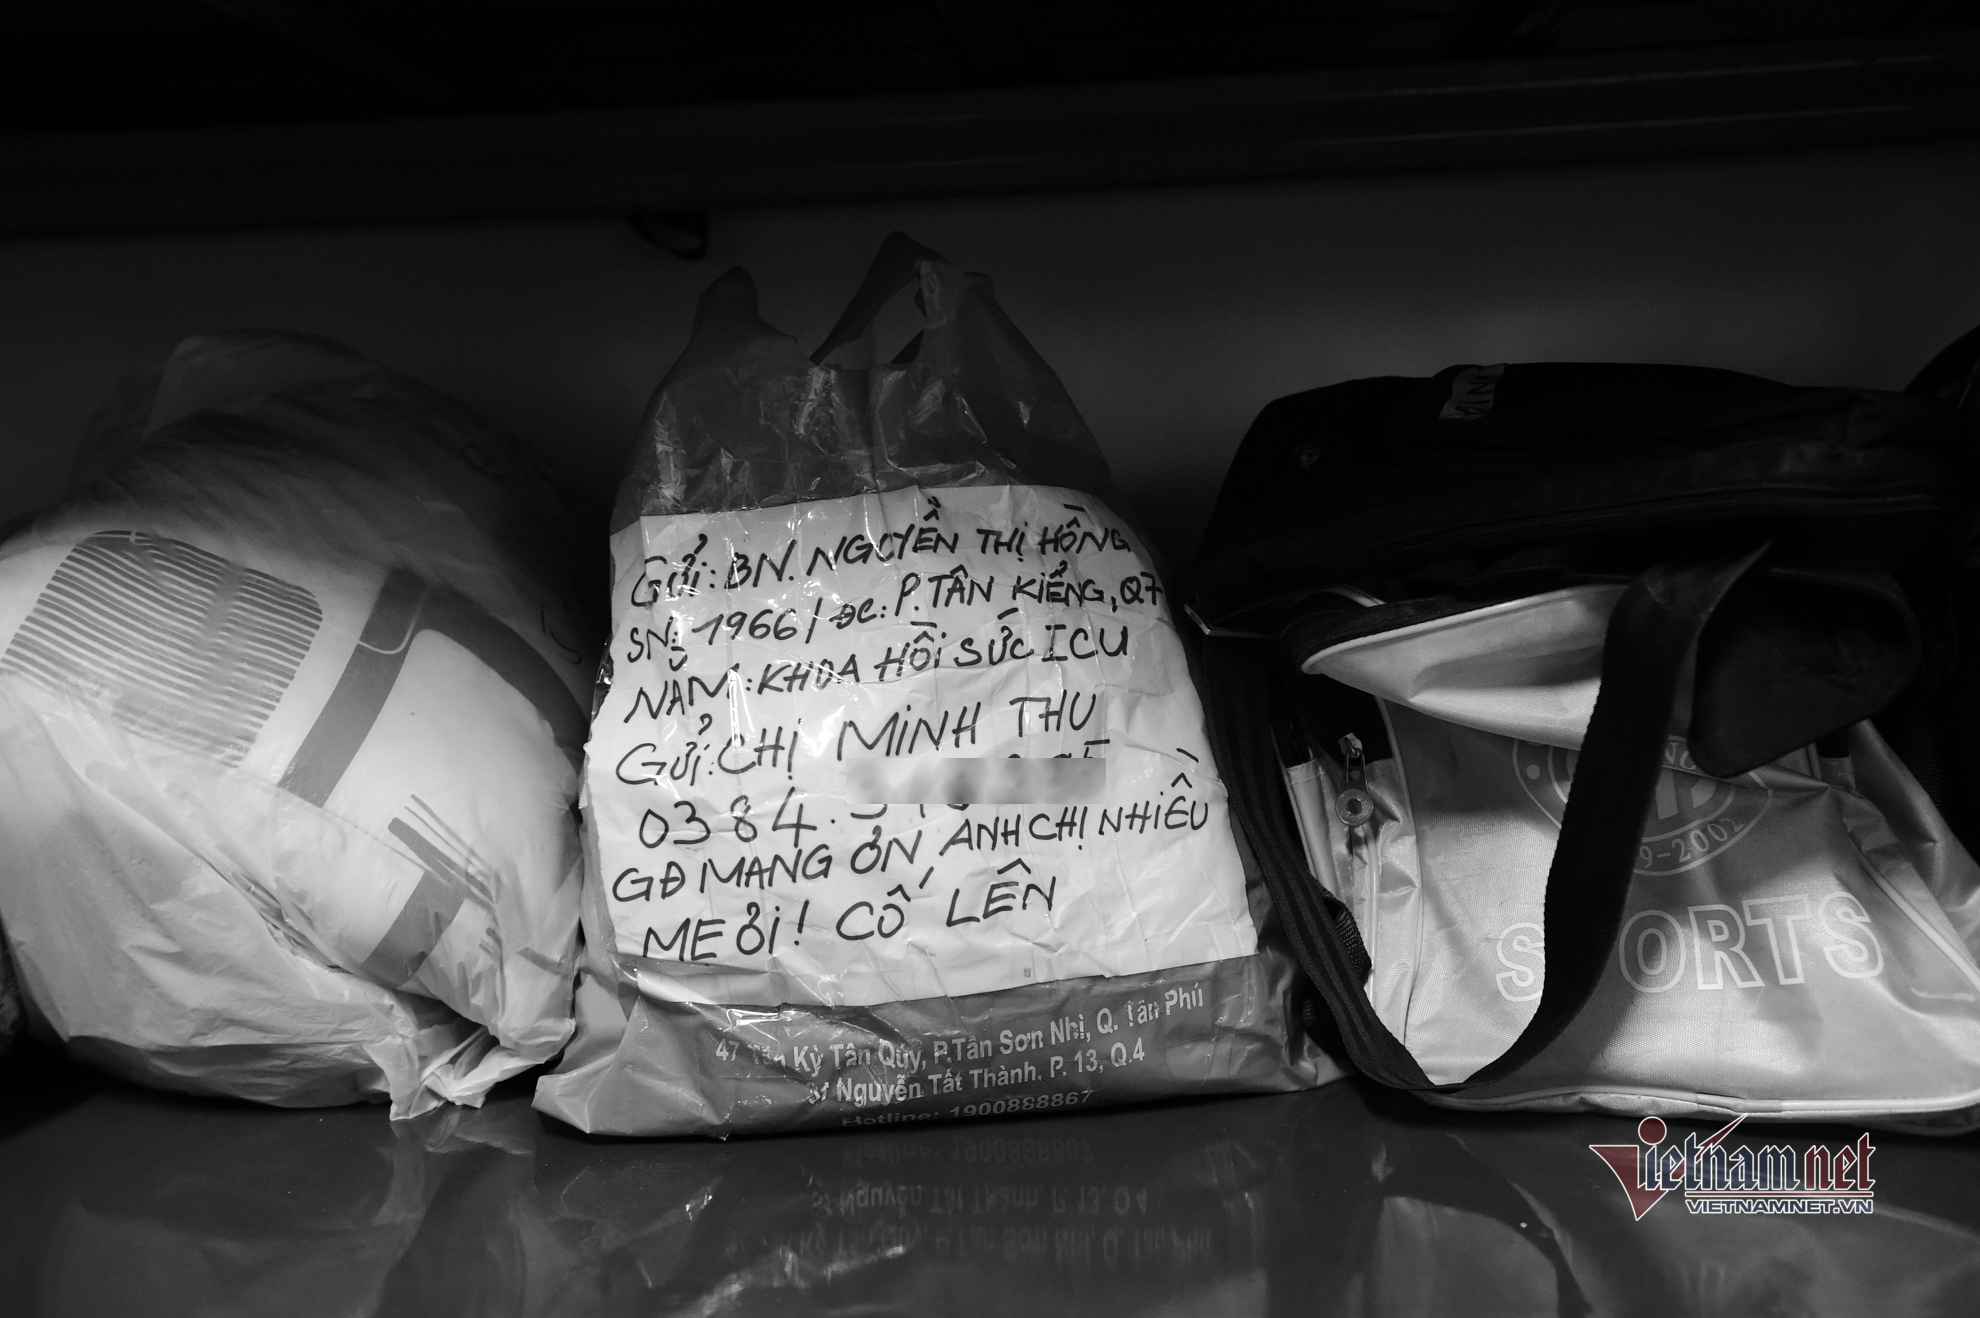 GỬI: BN. NGUYỄN THỊ HỒNG
SN: 1966 / ĐC: P. TÂN KIỂNG, Q7
NẰM: KHOA HỒI SỨC ICU
GỬI: CHỊ MINH THU
0384.
GĐ MANG ƠN ANH CHỊ NHIỀU
MẸ ƠI! CỐ LÊN
47 Tân Kỳ Tân Qúy, P.Tân Sơn Nhì, Q. Tân Phú
Nguyễn Tất Thành, P. 13, Q.4
Hotline: 1900888867
9-2002
SPORTS
Vietnamnet
VIETNAMNET.VN